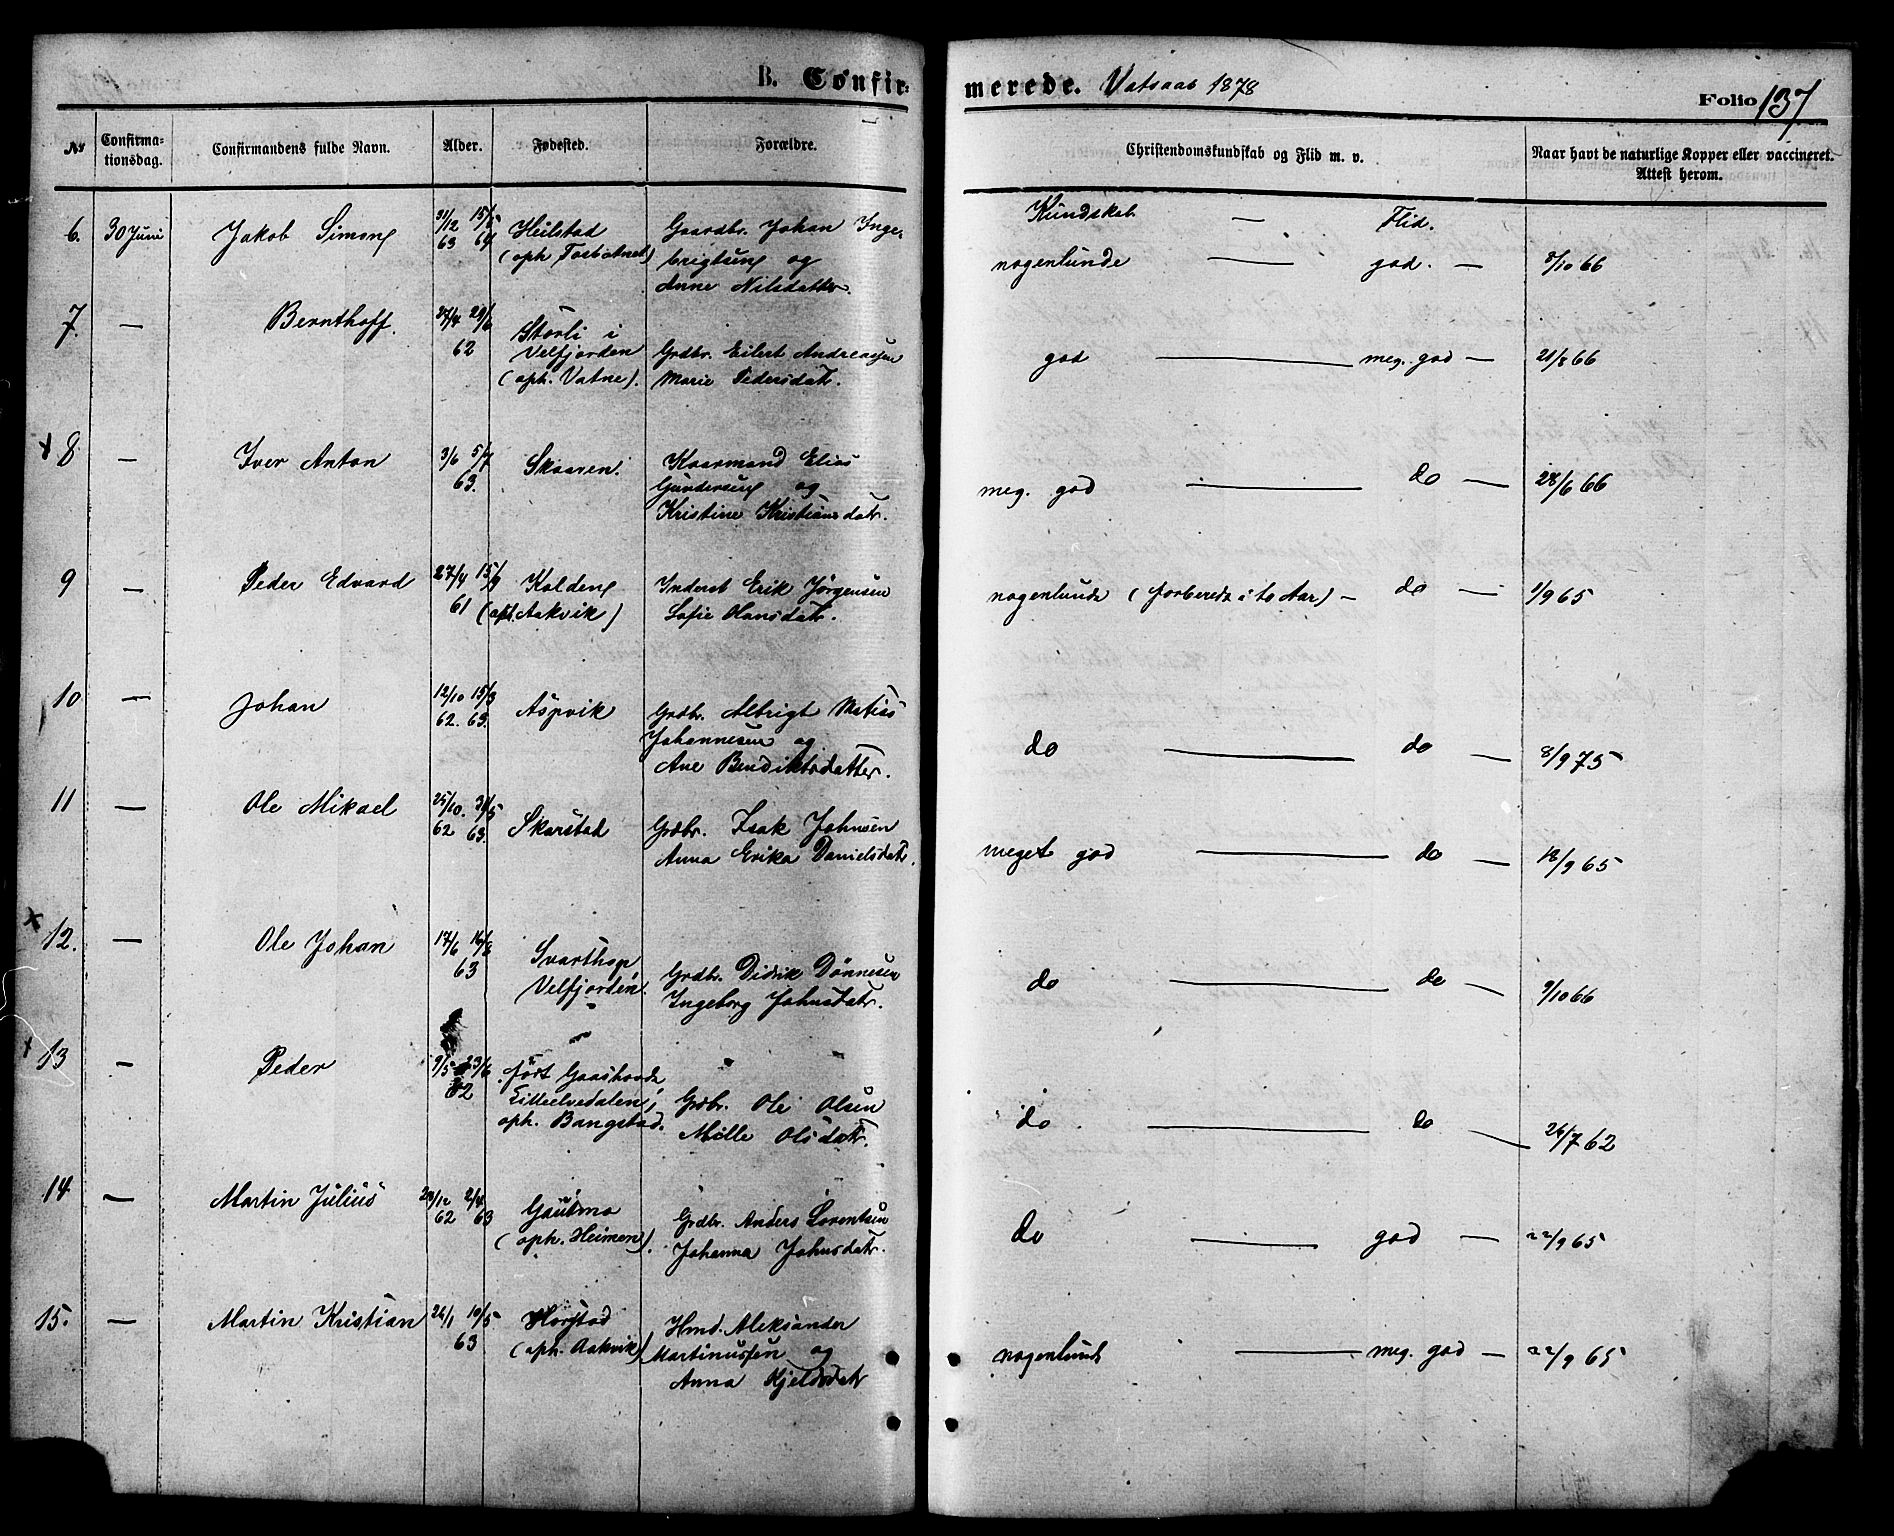 B. Confir-
merede. Vatsaas 1878
Folio 137
No Confirma-
tionsdag. Confirmandens fulde Navn. Alder. Fødested. Forældre. Christendomskundskab og Flid m. v. Naar havt de naturlige Kopper eller vaccineret.
Attest herom.
Kundskab — Flid.
6. 30 Juni Jakob Simon 31/12 63 15/5 64 Heilstad
(oph Tosbotnet) Gaardbr. Johan Inge-
brigtsen og
Anne Nilsdatter. nogenlunde — god. — 8/10 66
7. — Bernthoff. 27/4 29/6
62 Storli i
Velfjorden
(oph. Vatne). Grdbr. Eilert Andreassen
Marie Pedersdatr. god — meg. god — 21/8 66
+ 8 — Iver Anton 3/6 5/7
63. Skaaren. Kaarmand Elias
Gundersen og
Kristine Kristiansdatr. meg. god — do — 28/6 66
9 — Peder Edvard 27/4 15/9
61 Kolden
(oph. Aakvik) Inderst Erik Jørgensen
Sofie Hansdatr. nogenlunde (forberedt i to Aar) — do — 1/9 65
10 — Johan 12/10 15/3
62. 63. Aspvik Grdbr. Albrigt Matias
Johannesen og
Ane Bendiktsdatter. do — do — 8/9 75
11 — Ole Mikael 25/10. 31/5
62 63. Skarstad Grdbr. Isak Johnsen
Anna Erika Danielsdatr. meget god — do — 18/9 65
x 12. — Ole Johan 17/6 16/8
63 Svarthop
Velfjorden Grdbr. Didrik Dønnesen
Ingeborg Johnsdatr. do — do — 9/10 66
+ 13 — Peder 9/5 23/6
62 født
oph. Bangstad. Grdbr. Ole Olsen
Mille Olsdatr. do — do — 26/7 62
14. — Martin Julius 23/12 2/4
62 63 Gautmo
(oph. Heimen). Grdbr. Anders Lorentsen
Johanna Johnsdatr. do — god — 22/9 65
15. — Martin Kristian 26/1 10/5
63 Horstad
(oph. Aakvik) Hmd. Aleksander
Martinussen og
Anna Kjeldsdatr nogenlunde — meg. god — 22/9 65